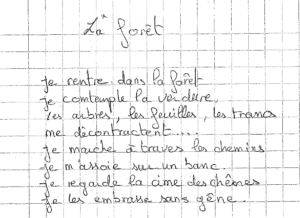 La forêt
je rentre dans la forêt
je comtemple la verdure.
les arbres, les feuilles, les troncs
me décontractent....
je marche à travers les chemins
je m'assoie sur un banc.
je regarde la cime des chênes
je les embrasse sans gêne.